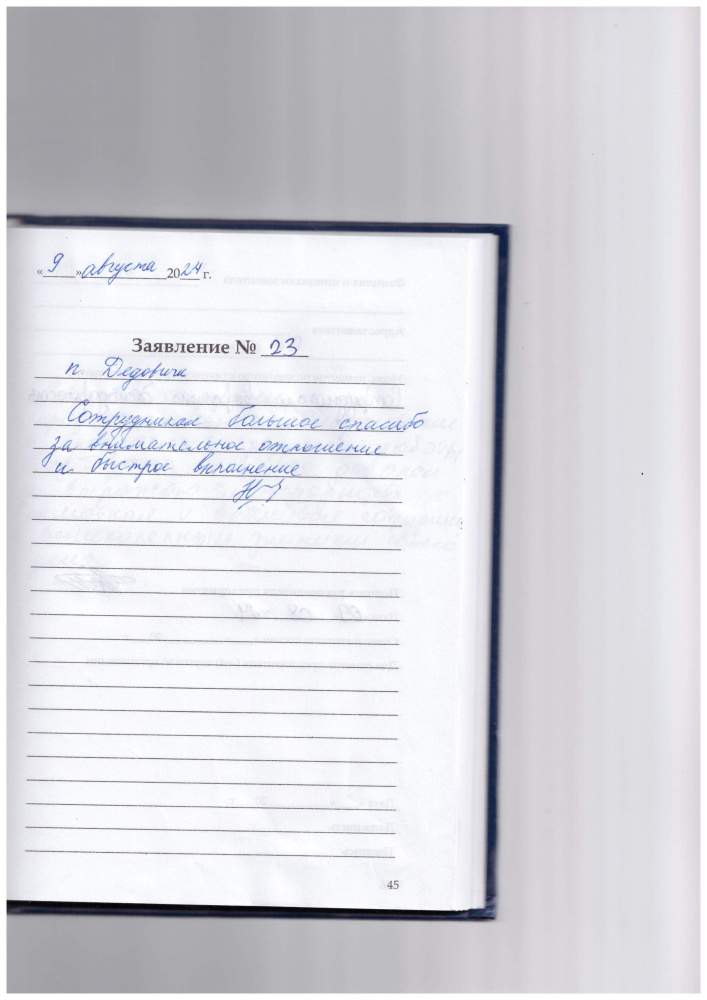 «9» августа 2024 г.
Заявление № 23
п. Дедовичи
Сотрудникам большое спасибо
за внимательное отношение
и быстрое выполнение
45